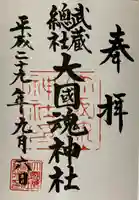 奉拝
武蔵
總社
大國魂神社
平成二九年九月六日